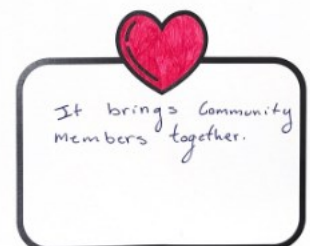 It brings Community
members together.